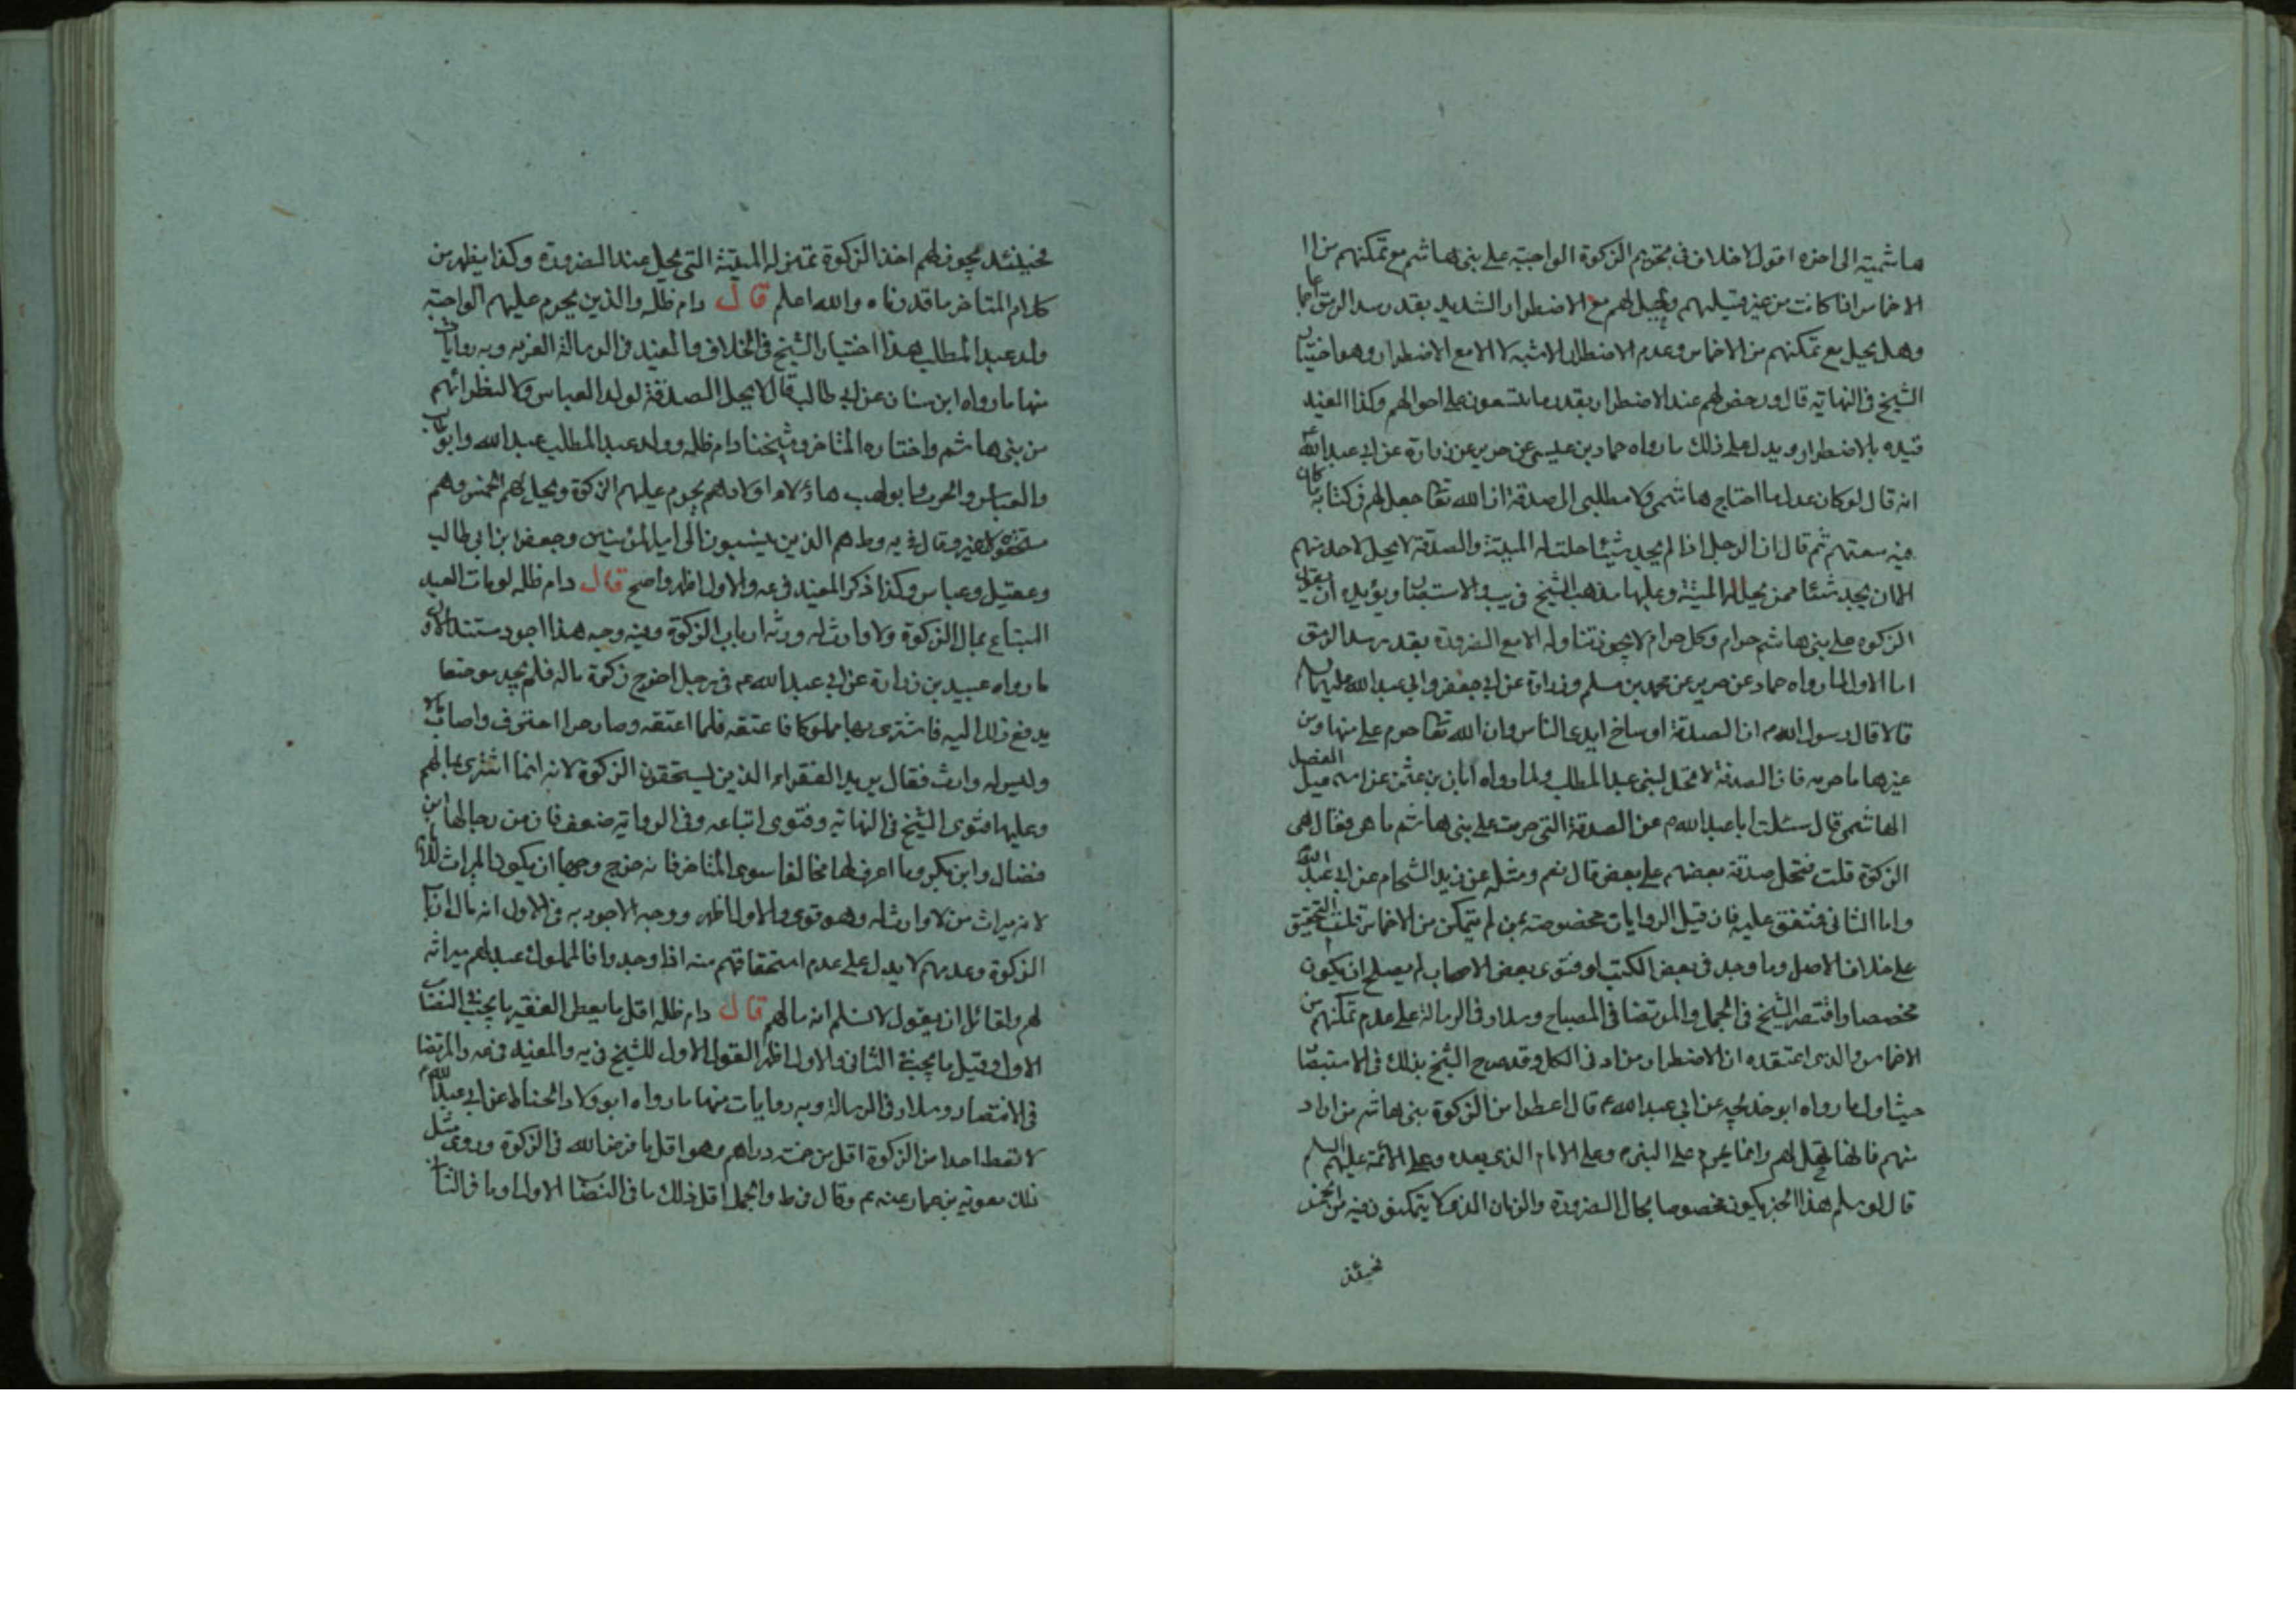 هاشمية الى اخره اقول لا خلاف فى تحريم الزكوة الواجبة على بنى هاشم مع تمكنهم من ا
الاخماس اذا كانت من غير قبيلهم ويحل لهم مع الاضطرار الشديد بقدر سد الرمق اجماعا
وهل يحل مع تمكنهم من الاخماس وعدم الاضطرار الاشبه لا الا مع الاضطرار وهو اختيار
الشيخ فى النهاية قال ورخص لهم عند الاضطرار بقدر ما يتسعون على احوالهم وكذا المفيد
قيده بالاضطرار ويدل على ذلك ما رواه حماد بن عيسى عن حريز عن زرارة عن ابى عبد الله ع
انه قال لو كان عدل ما احتاج هاشمى ولا مطلبى الى صدقة ان الله تعالى جعل لهم فى كتابه ما كان
فيه سعتهم ثم قال ان الرجل اذا لم يجد شيئا حلت له الميتة والصدقة لا يحل لاحد منهم
الا ان يجد شيئا ممن يحل له الميتة وعليها مذهب الشيخ فى يب والاستبصار ويؤيده ان يقول
الزكوه على بنى هاشم حرام وكل حرام لا يجوز تناوله الا مع الضرورة بقدر سد الرمق
اما الاول لما رواه حماد عن حريز عن محمد بن مسلم وزرارة عن ابى جعفر وابى عبد الله عليهما السلام
قالا قال رسول الله ص ان الصدقة اوساخ ايدى الناس وان الله تعالى حرم على منها ومن
غيرها ما حرمه فان الصدقة لا تحل لبنى عبد المطلب ولما رواه ابان بن عثمن عن اسمعيل الفضل
الهاشمى قال سئلت ابا عبد الله م عن الصدقة التى حرمت على بنى هاشم ما هى فقال هى
الزكوة قلت فتحل صدقة بعضهم على بعض قال نعم ومثله عن زيد الشحام عن ابى عبد الله
واما الثانى فمتفق عليه فان قيل الروايات مخصوصة بمن لم يتمكن من الاخماس قلت التخصيص
على خلاف الاصل وما وجد فى بعض الكتب او فتوى بعض الاصحاب لم يصلح ان يكون
مخصصا واقتصر الشيخ فى الجمل والمرتضا فى المصباح وسلار فى الرسالة على عدم تمكنهم من
الاخماس والذى اعتقده ان الاضطرار مراد فى الكل وقد صرح الشيخ بذلك فى الاستبصار
حيث اول ما رواه ابو خديجه عن ابى عبد الله م قال اعطوا من الزكوة بنى هاشم من اراد
منهم فانها تحل لهم وانما يحرم على النبى م وعلى الامام الذى بعده وعلى الائمة عليهم السلم
قال لو سلم هذا الخبر يكون مخصوصا بحال الضرورة والزمان الذى لا يتمكنون فيه من الخمس
فحينئذ
فحينئذ يجوز لهم اخذ الزكوة بمنزلة الميتة التى يحل عند الضرورة وكذا يظهر من
كلام المتاخر ما قدمناه والله اعلم قال دام ظله والذين يحرم عليهم الواجبة
ولد عبد المطلب هذا اختيار الشيخ فى الخلاف والمفيد فى الرسالة الغرية وبه روايات
منها ما رواه ابن سنان عن ابى طالب قال لا يحل الصدقة لولد العباس ولا لنظرائهم
من بنى هاشم واختاره المتاخر وشيخنا دام ظله وولد عبد المطلب عبد الله وابو طالب
والعباس والحرث وابو لهب هاؤلاء اولادهم يحرم عليهم الزكوة ويحل لهم الخمس وهم
مستحقوه لا غير وقال فى يه وط هم الذين ينسبون الى امير المؤمنين وجعفر ابن ابى طالب
وعقيل وعباس وكذا ذكر المفيد فى عه والاول اظهر واصح قال دام ظله لو مات العبد
المبتاع بمال الزكوة ولا وارث له ورثه ارباب الزكوة وفيه وجه هذا اجود مستند الاول
ما رواه عبيد بن زرارة عن ابى عبد الله ع فى رجل اخرج زكوة ماله فلم يجد موضعا
يدفع ذلك اليه فاشترى بها مملوكا فاعتقه فلما اعتقه وصار حرا احترف واصاب مالا
وليس له وارث فقال يرثه الفقراء الذين يستحقون الزكوة لانه انما اشترى بمالهم
وعليها فتوى الشيخ فى النهاية وفتوى اتباعه وفى الرواية ضعف فان من رجالها ابن
فضال وابن بكير وما اعرف لها مخالفا سوى المتاخر فانه خرج وجها ان يكون الميراث للامام
لانه ميراث من لا وارث له وهو قوى والاول اظهر ووجه الاجود به فى الاول انه مال ارباب
الزكوة وعدمهم لا يدل على عدم استحقاقهم منه اذا وجدوا فالمملوك عبد لهم ميراثه
لهم ولقائل ان يقول لا نسلم انه مالهم قال دام ظله اقل ما يعطى الفقير ما يجب فى النصاب
الاول وقيل ما يجب فى الثانى والاول اظهر القول الاول للشيخ فى يه والمفيد فى عه والمرتضا
فى الانتصار وسلار فى الرسالة وبه روايات منها ما رواه ابو ولاد الحناط عن ابى عبد الله م
لا تعط احدا من الزكوة اقل من خمسة دراهم وهو اقل ما فرض الله فى الزكوة وروى مثل
ذلك معوية بن عمار عنه م وقال فى ط والجمل اقل ذلك ما فى النصاب الاول او ما فى الثا